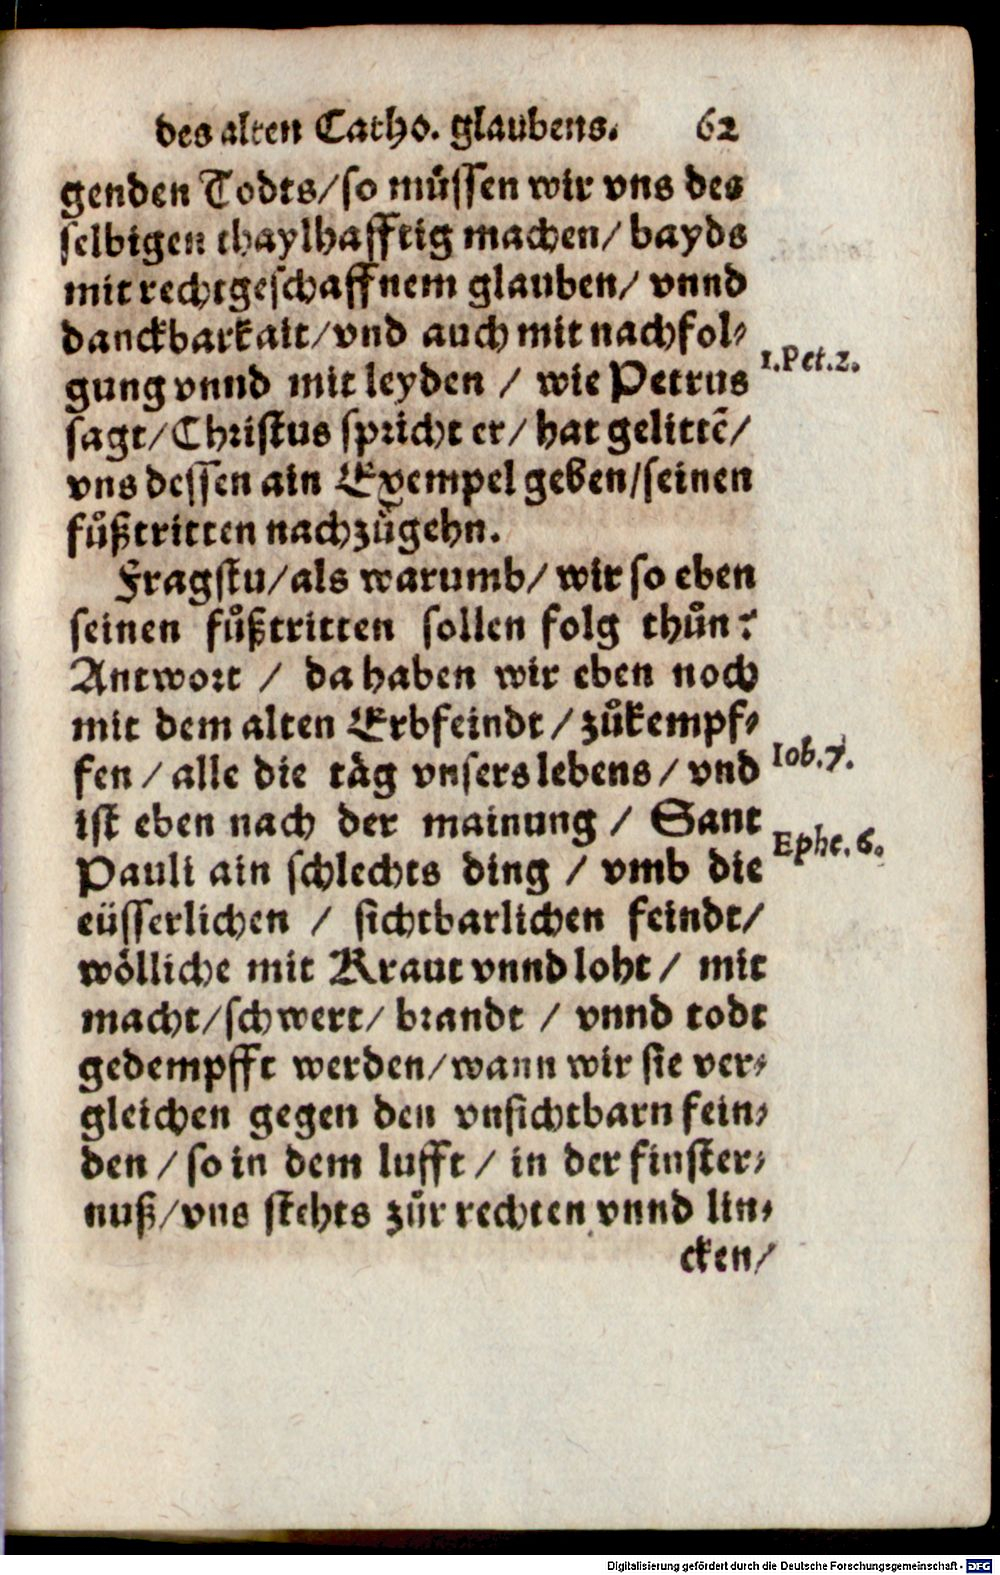 des alten Catho. glaubens. 62
genden Todts/so müssen wir vns des
selbigen thaylhafftig machen/ bayds
mit rechtgeschaffnem glauben/ vnnd
danckbarkait/vnd auch mit nachfol⸗
gung vnnd mit leyden / wie Petrus
1.Pet.2.
sagt/Christus spricht er/ hat gelittē/
vns dessen ain Exempel geben/seinen
fuͦßtritten nachzuͦgehn.
Fragstu/als warumb/ wir so eben
seinen fuͦßtritten sollen folg thuͦn?
Antwort / da haben wir eben noch
mit dem alten Erbfeindt / zuͦkempf⸗
fen / alle die taͤg vnsers lebens / vnd
Iob.7.
ist eben nach der mainung / Sant
Pauli ain schlechts ding / vmb die
Ephe.6.
eüsserlichen / sichtbarlichen feindt/
woͤlliche mit Kraut vnnd loht / mit
macht/schwert/ brandt / vnnd todt
gedempfft werden/wann wir sie ver⸗
gleichen gegen den vnsichtbarn fein⸗
den / so in dem lufft / in der finster⸗
nuß/vns stehts zuͦr rechten vnnd lin⸗
cken/
Digitalisierung gefördert durch die Deutsche Forschungsgemeinschaft - DFG